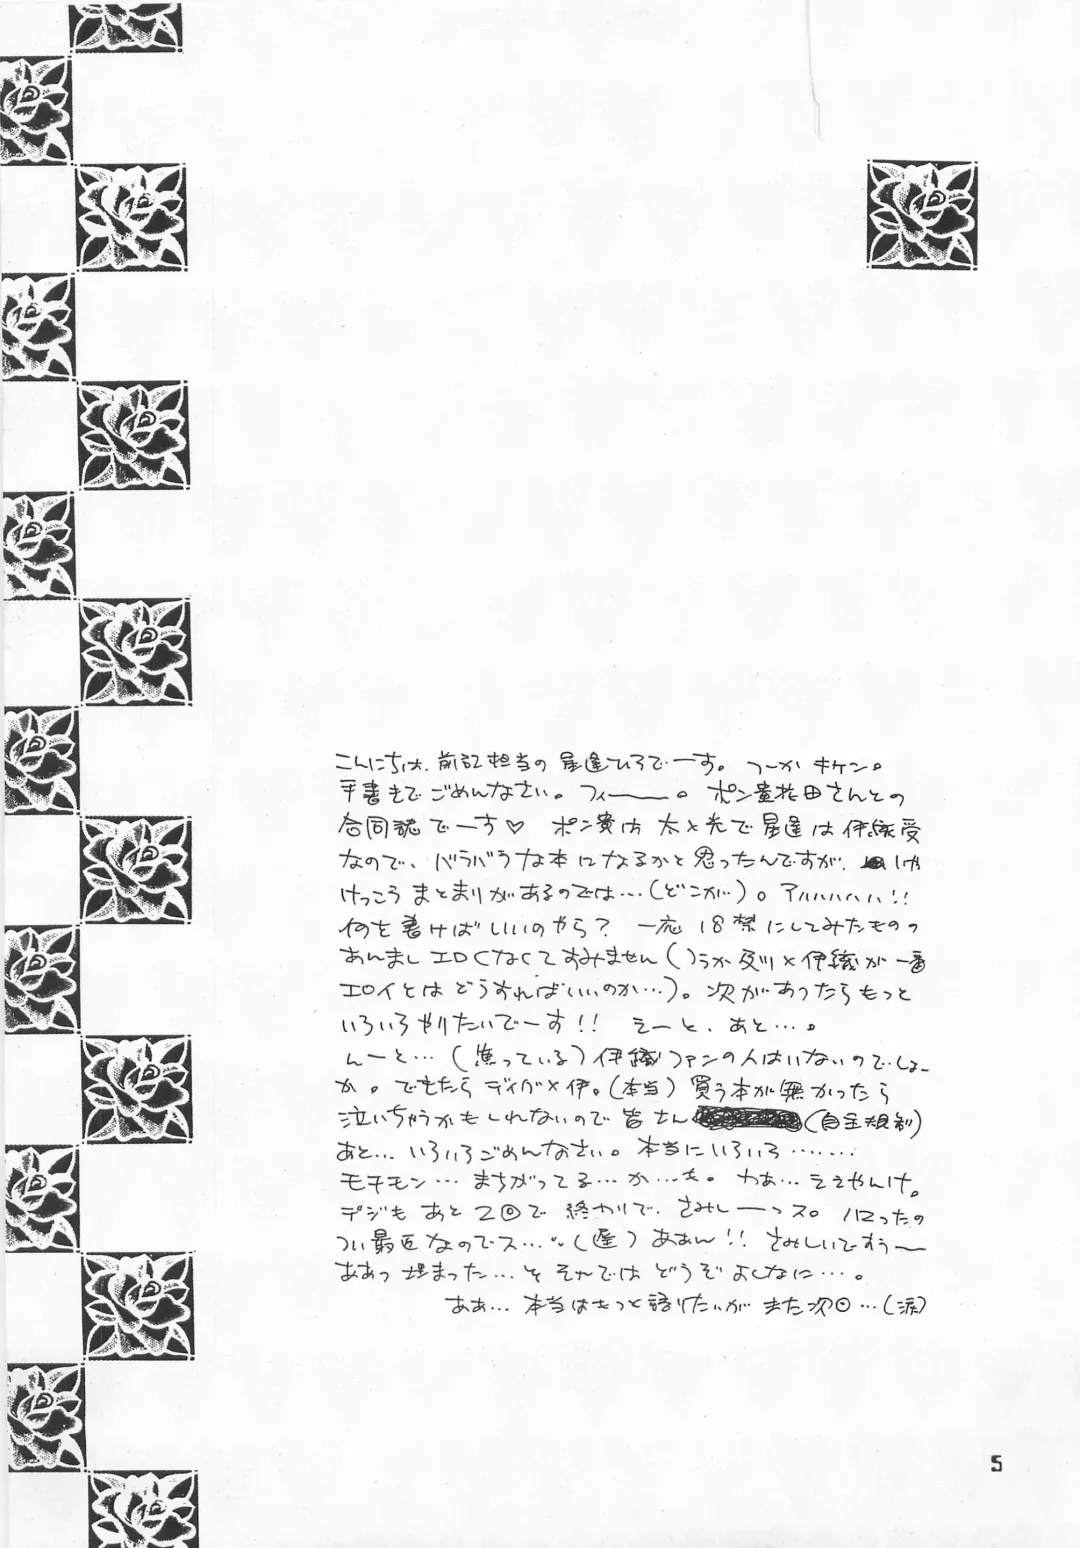 こんにちは、前記担当の星逢ひろでーす。つーかキケン。
手書きでごめんなさい。フィーー。ポン貴花田さんとの
合同誌でーす♡ ポン貴は太と光で星逢は伊織受
なので、バラバラな本になるかと思ったんですが、
けっこうまとまりがあるのでは…(どこが)。アハハハハ!!
何を書けばいいのやら? 一応18禁にしてみたものの
あんましエロくなくてすみません(つうか及川×伊織が一番
エロイとはどうすればいいのか…)。次があったらもっと
いろいろやりたいでーす!! えーと、あと…。
んーと…(焦っている)伊織ファンの人はいないのでしょー
か。でもたら ディグ×伊。(本当)買う本が無かったら
泣いちゃうかもしれないので皆さん(自主規制)
あと…いろいろごめんなさい。本当にいろいろ……
モチモン…まちがってる…か…も。わあ…ええやんけ。
デジもあと2回で終わりで、さみしーーっス。ハマったの
つい最近なのでス…(遅)ああん!! さみしいですぅー
ああっ埋まった…とそれではどうぞよしなに…。
ああ…本当はもっと語りたいがまた次回…(涙)
5